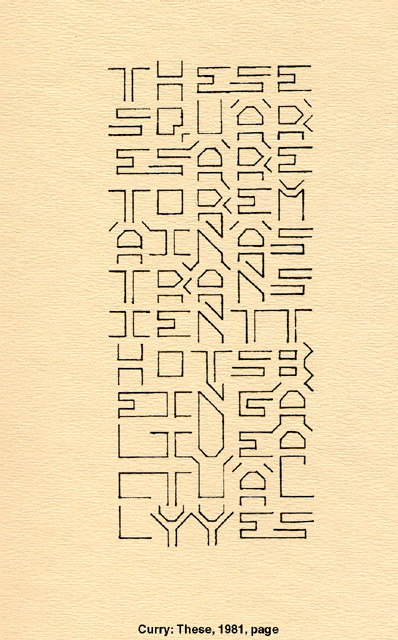 THESE
SQUAR
ESARE
TOREM
AINAS
TRANS
IENTT
HOTSB
EINGA
LIVEA
CTUAL
LYYES
Curry: These, 1981, page